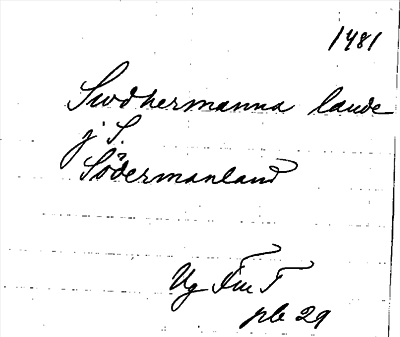 1481
Swdhermanna lande
j S.
Södermanland
Ug Fm T
plc 29